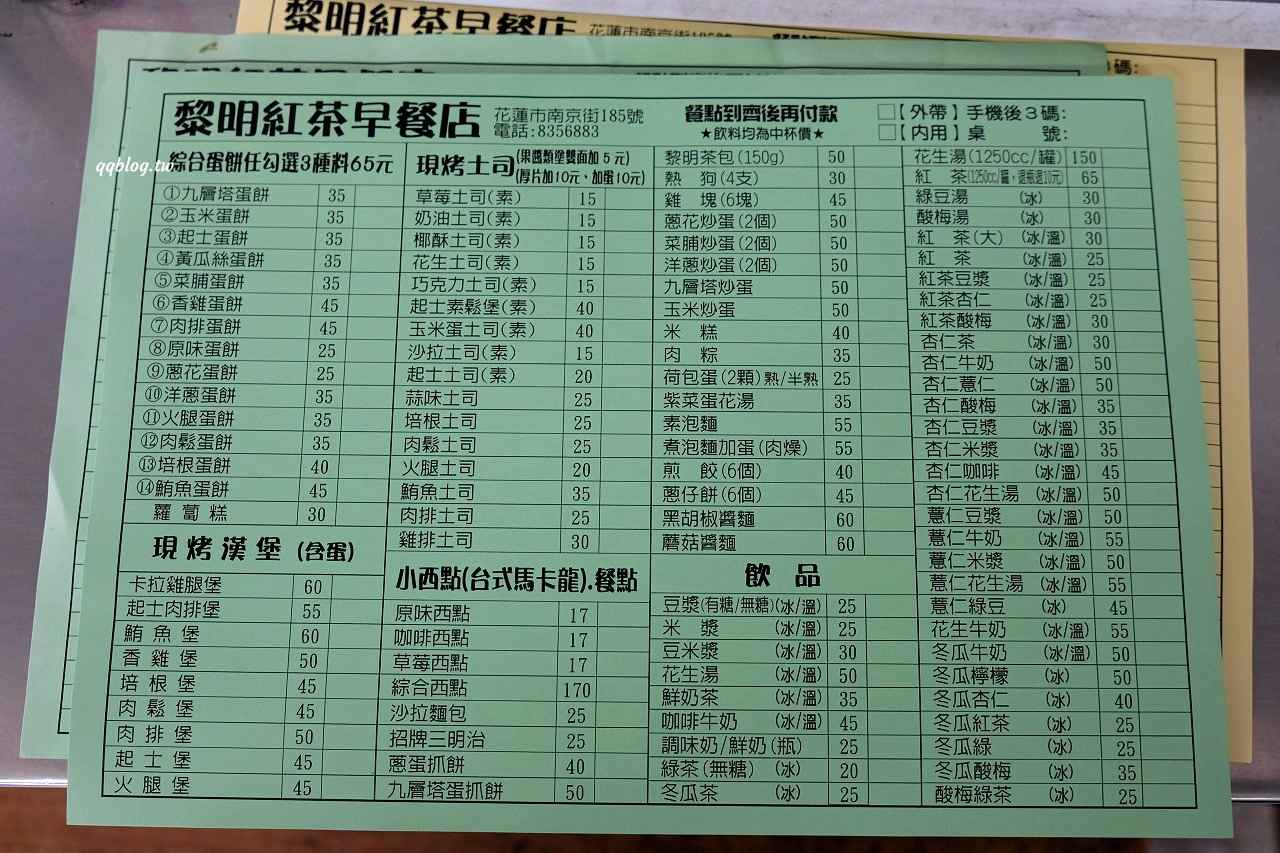 黎明紅茶早餐店 花蓮市南京街185號
碼:
黎明紅茶早餐店 花蓮市南京街185號 電話:8356883
餐點到齊後再付款
★飲料均為中杯價★
□【外帶】手機後3碼:
□【內用】桌 號:
qqblog.tw
綜合蛋餅任勾選3種料65元
①九層塔蛋餅 35
②玉米蛋餅 35
③起士蛋餅 35
④黃瓜絲蛋餅 35
⑤菜脯蛋餅 35
⑥香雞蛋餅 45
⑦肉排蛋餅 45
⑧原味蛋餅 25
⑨蔥花蛋餅 25
⑩洋蔥蛋餅 35
⑪火腿蛋餅 35
⑫肉鬆蛋餅 35
⑬培根蛋餅 40
⑭鮪魚蛋餅 45
蘿蔔糕 30
現烤漢堡(含蛋)
卡拉雞腿堡 60
起士肉排堡 55
鮪魚堡 60
香雞堡 50
培根堡 45
肉鬆堡 45
肉排堡 50
起士堡 45
火腿堡 45
現烤土司(果醬類塗雙面加5元)
(厚片加10元、加蛋10元)
草莓土司(素) 15
奶油土司(素) 15
椰酥土司(素) 15
花生土司(素) 15
巧克力土司(素) 15
起士素鬆堡(素) 40
玉米蛋土司(素) 40
沙拉土司(素) 15
起士土司(素) 20
蒜味土司 25
培根土司 25
肉鬆土司 25
火腿土司 20
鮪魚土司 35
肉排土司 25
雞排土司 30
小西點(台式馬卡龍).餐點
原味西點 17
咖啡西點 17
草莓西點 17
綜合西點 170
沙拉麵包 25
招牌三明治 25
蔥蛋抓餅 40
九層塔蛋抓餅 50
黎明茶包(150g) 50
熱狗(4支) 30
雞塊(6塊) 45
蔥花炒蛋(2個) 50
菜脯炒蛋(2個) 50
洋蔥炒蛋(2個) 50
九層塔炒蛋 50
玉米炒蛋 50
米糕 40
肉粽 35
荷包蛋(2顆)熟/半熟 25
紫菜蛋花湯 35
素泡麵 55
煮泡麵加蛋(肉燥) 55
煎餃(6個) 40
蔥仔餅(6個) 45
黑胡椒醬麵 60
蘑菇醬麵 60
飲品
豆漿(有糖/無糖)(冰/溫) 25
米漿 (冰/溫) 25
豆米漿 (冰/溫) 30
花生湯 (冰/溫) 50
鮮奶茶 (冰/溫) 35
咖啡牛奶 (冰/溫) 45
調味奶/鮮奶(瓶) 25
綠茶(無糖) (冰) 20
冬瓜茶 (冰) 25
花生湯(1250cc/罐) 150
紅茶(1250cc/罐，退瓶退10元) 65
綠豆湯 (冰) 30
酸梅湯 (冰) 30
紅茶(大) (冰/溫) 30
紅茶 (冰/溫) 25
紅茶豆漿 (冰/溫) 25
紅茶杏仁 (冰/溫) 25
紅茶酸梅 (冰/溫) 30
杏仁茶 (冰/溫) 30
杏仁牛奶 (冰/溫) 50
杏仁薏仁 (冰/溫) 50
杏仁酸梅 (冰/溫) 35
杏仁豆漿 (冰/溫) 35
杏仁米漿 (冰/溫) 35
杏仁咖啡 (冰/溫) 45
杏仁花生湯 (冰/溫) 50
薏仁豆漿 (冰/溫) 50
薏仁牛奶 (冰/溫) 55
薏仁米漿 (冰/溫) 50
薏仁花生湯 (冰/溫) 55
薏仁綠豆 (冰) 45
花生牛奶 (冰/溫) 55
冬瓜牛奶 (冰/溫) 50
冬瓜檸檬 (冰) 50
冬瓜杏仁 (冰) 40
冬瓜紅茶 (冰) 25
冬瓜綠 (冰) 25
冬瓜酸梅 (冰) 35
酸梅綠茶 (冰) 25